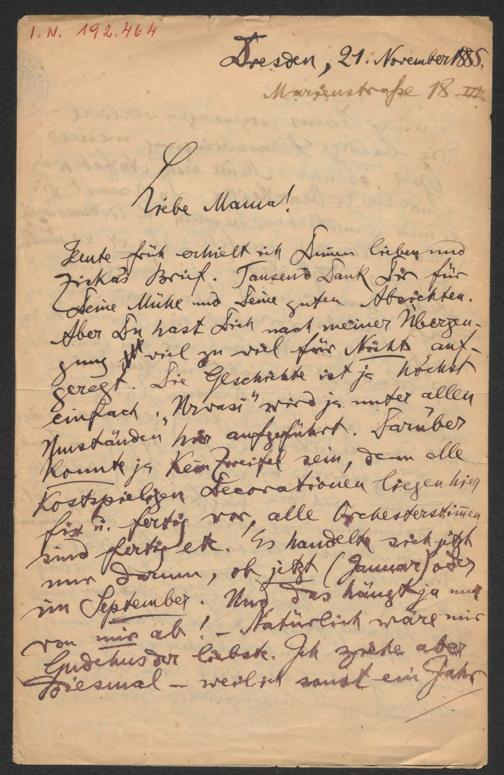 I.N. 192.464
Dresden, 21. November 1885.
Marienstraße 18 III
Liebe Mama!
Heute früh erhielt ich Deinen lieben und
Zickas Brief. Tausend Dank Dir für
Deine Mühe und Deine guten Absichten.
Aber Du hast Dich nach meiner Überzeu-
gung viel zu viel für Nichts auf-
geregt. Die Geschichte ist ja höchst
einfach. "Urvasi" wird ja unter allen
Umständen hier aufgeführt. Darüber
konnte ja kein Zweifel sein, denn alle
kostspieligen Decorationen liegen hier
fix u. fertig vor, alle Orchesterstim̅en
sind fertig etc. Es handelte sich jetzt
nur darum, ob jetzt (Januar) oder
im September. Und das hängt ja nur
von mir ab! – Natürlich wäre mir
Gudehus der liebste. Ich ziehe aber
diesmal – weil ich sonst ein Jahr